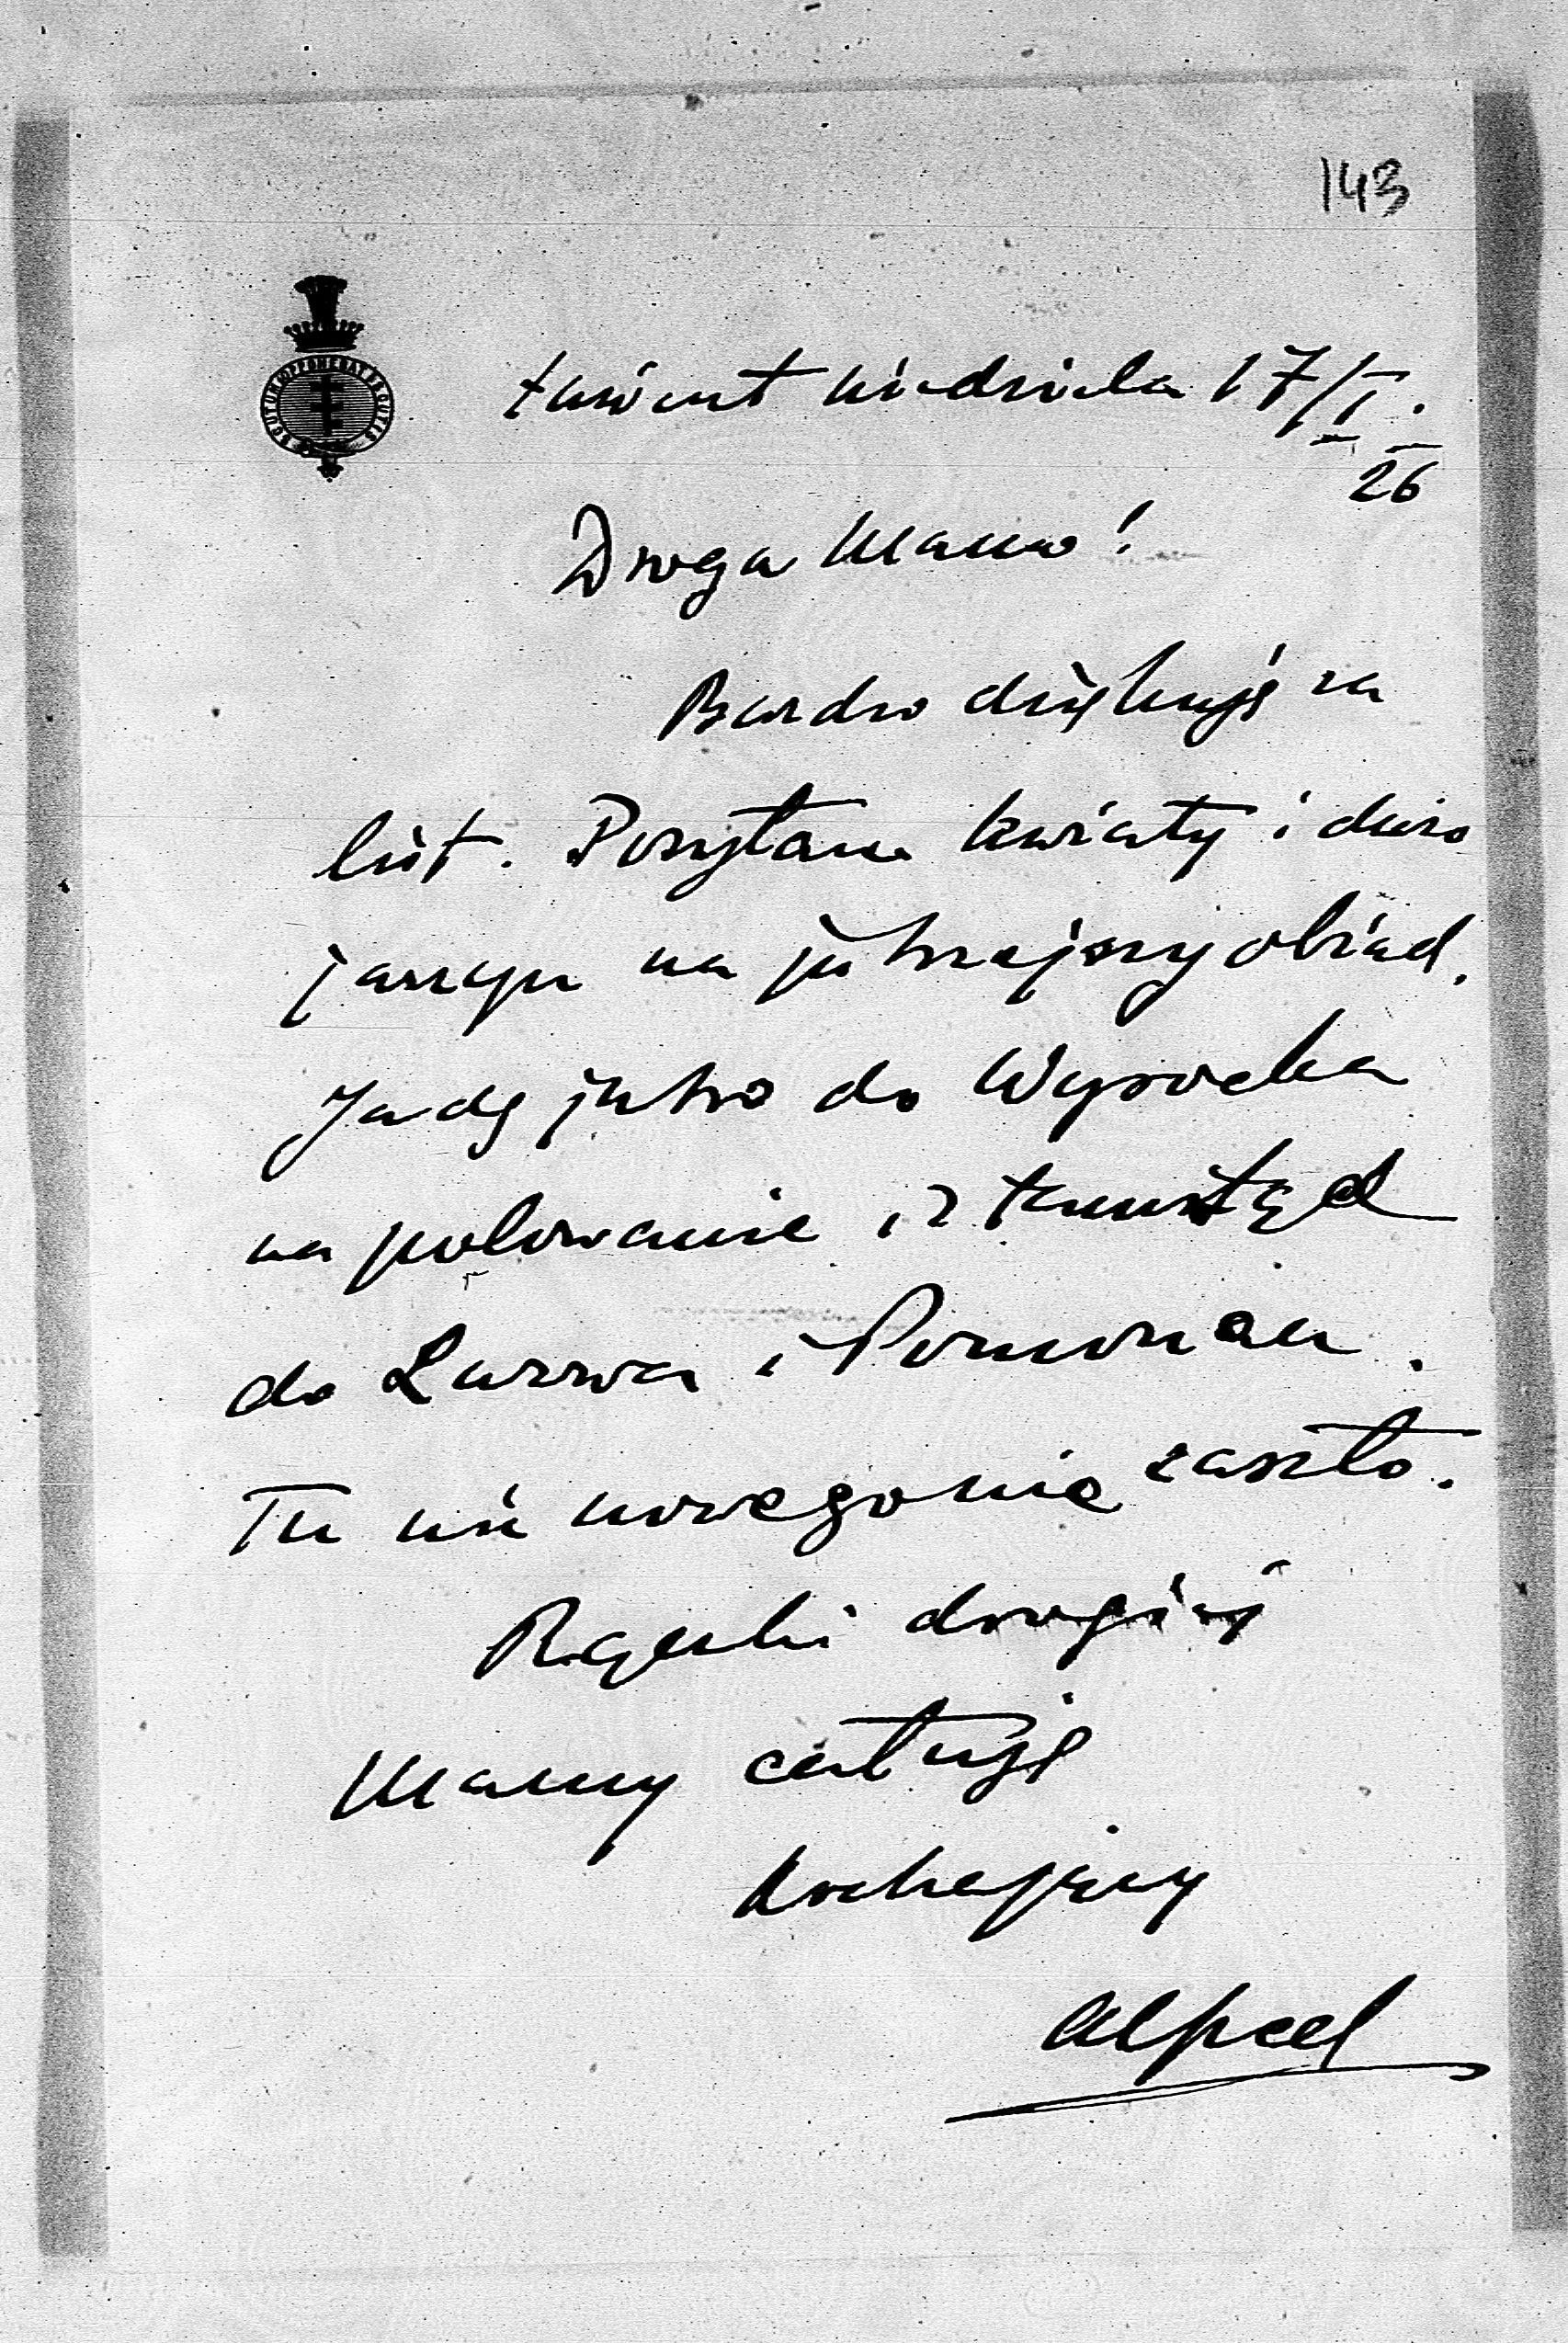 143
SCUTUM OPPONEBAT SCUTIS
Łańcut niedziela 17/I.
26
Droga Mamo!
Bardzo dziękuję za
list. Posyłam kwiaty i dużo
jarzyn na jutrzejszy obiad.
Jadę jutro do Wysocka
na polowanie i z tamtąd
do Lwowa i Pomorzan.
Tu nic nowego nie zaszło.
Rączki drogiej
Mamy całuję
kochający
Alfred